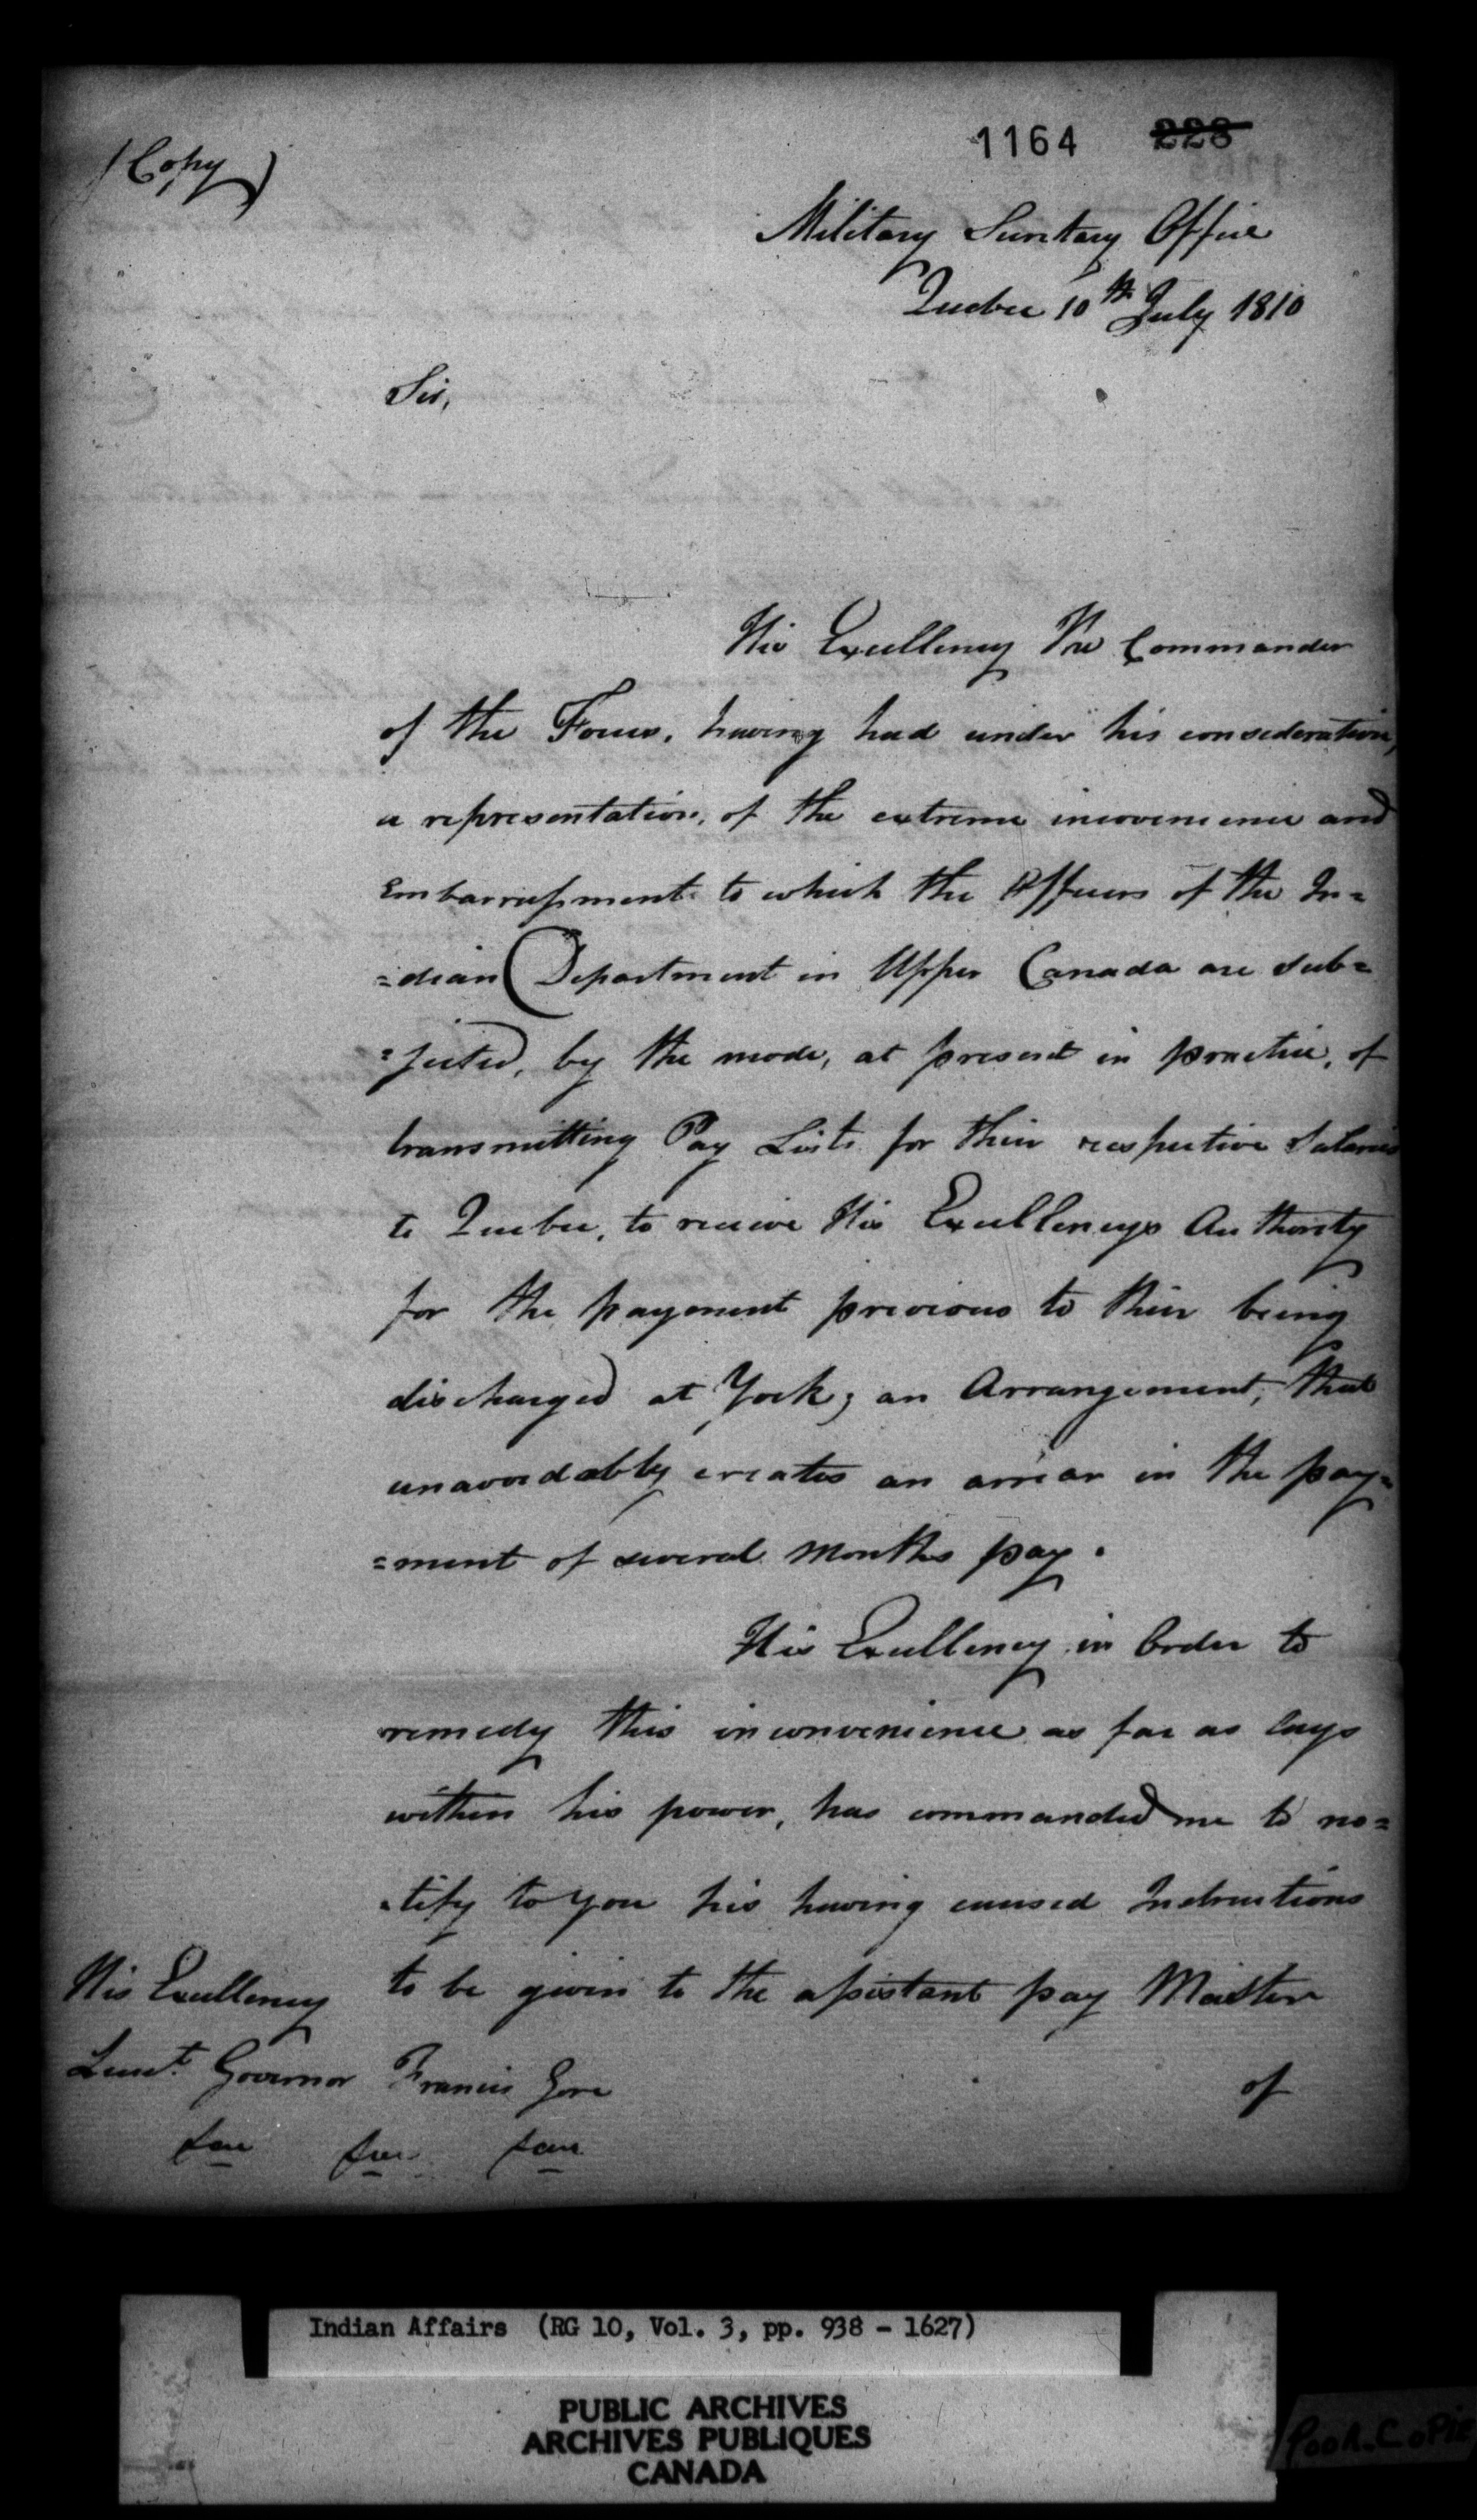 (Copy)
1164 228
Military Secretary Office
Quebec 10th July 1810
Sir,
His Excellency The Commander
of the Forces, having had under his consideration,
a representation, of the extreme inconvenience and
Embarrassment to which the Officers of the In=
=dian Department in Upper Canada are sub=
=jected, by the mode, at present in practice, of
transmitting Pay Lists for their respective Salaries
to Quebec, to receive His Excellencys Authority
for the payment previous to their being
discharged at York; an Arrangement, that
unavoidably creates an arrear in the pay=
=ment of several Months pay.
His Excellency in Order to
remedy this inconvenience as far as lays
within his power, has commanded me to no=
=tify to you his having caused Instructions
to be given to the assistant pay Master
His Excellency
Lieut. Governor Francis Gore
of
&c &c &c
Indian Affairs (RG 10, Vol. 3, pp. 938 - 1627)
PUBLIC ARCHIVES
ARCHIVES PUBLIQUES
CANADA
Poor Copie